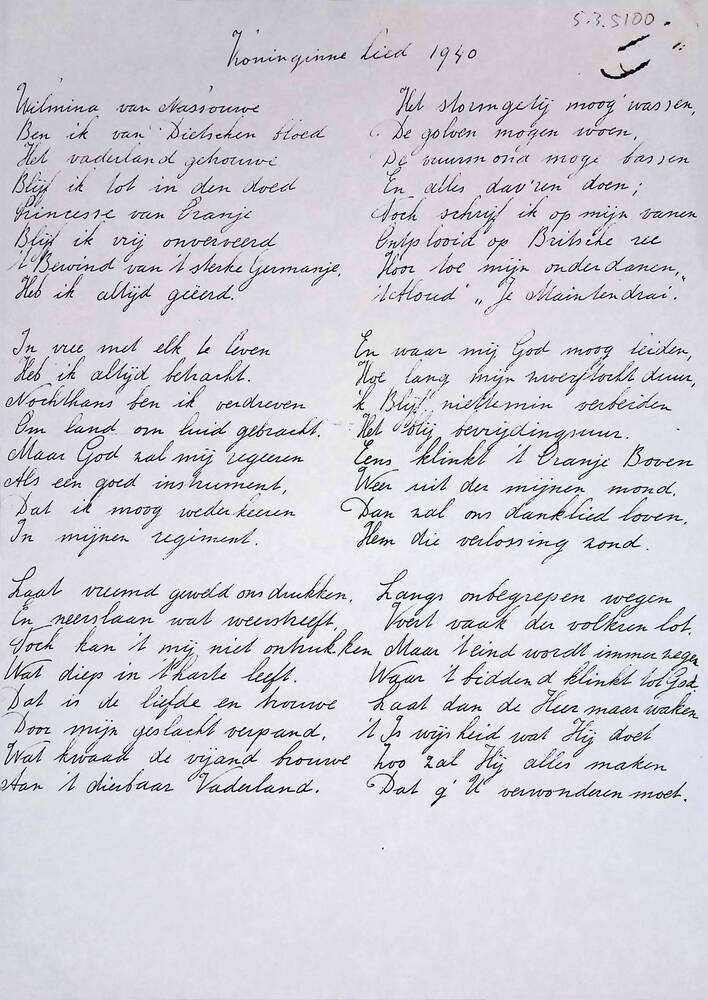 5.3.5100
Koninginne Lied 1940
Wilmina van Nassouwe
Ben ik van Dietschen bloed
Het vaderland getrouwe
Blijf ik tot in den doed
Princesse van Oranje
Blijf ik vrij onverveerd
't Bewind van 't sterke Germanje,
Heb ik altijd geëerd.
In vree met elk te leven
Heb ik altijd betracht.
Nochthans ben ik verdreven
Om land om luid gebracht.
Maar God zal mij regeeren
Als een goed instrument,
Dat ik moog wederkeeren
In mijnen regiment.
Laat vreemd geweld ons drukken,
En neerslaan wat weerstreeft,
Toch kan 't mij niet ontrukken
Wat diep in 't harte leeft.
Dat is de liefde en trouwe
Door mijn geslacht verpand,
Wat kwaad de vijand brouwe
Aan 't dierbaar Vaderland.
Het stormgetij moog' wassen,
De golven mogen woen,
De vuurmond moge bassen
En alles dav'ren doen;
Toch schrijf ik op mijn vanen
Ontplooid op Britsche zee
Voor toe mijn onderdanen,
't Aloud' „Je Maintendrai".
En waar mij God moog leiden,
Hoe lang mijn zwerftocht duur,
'k Blijf niettemin verbeiden
Het blij bevrijdingsuur.
Eens klinkt 't Oranje Boven
Weer uit der mijnen mond.
Dan zal ons danklied loven,
Hem die verlossing zond.
Langs onbegrepen wegen
Voert vaak der volkren lot.
Maar 't eind wordt immer zegen
Waar 't biddend klinkt tot God
Laat dan de Heer maar waken
't Is wijsheid wat Hij doet
Zoo zal Hij alles maken
Dat g' U verwonderen moet.